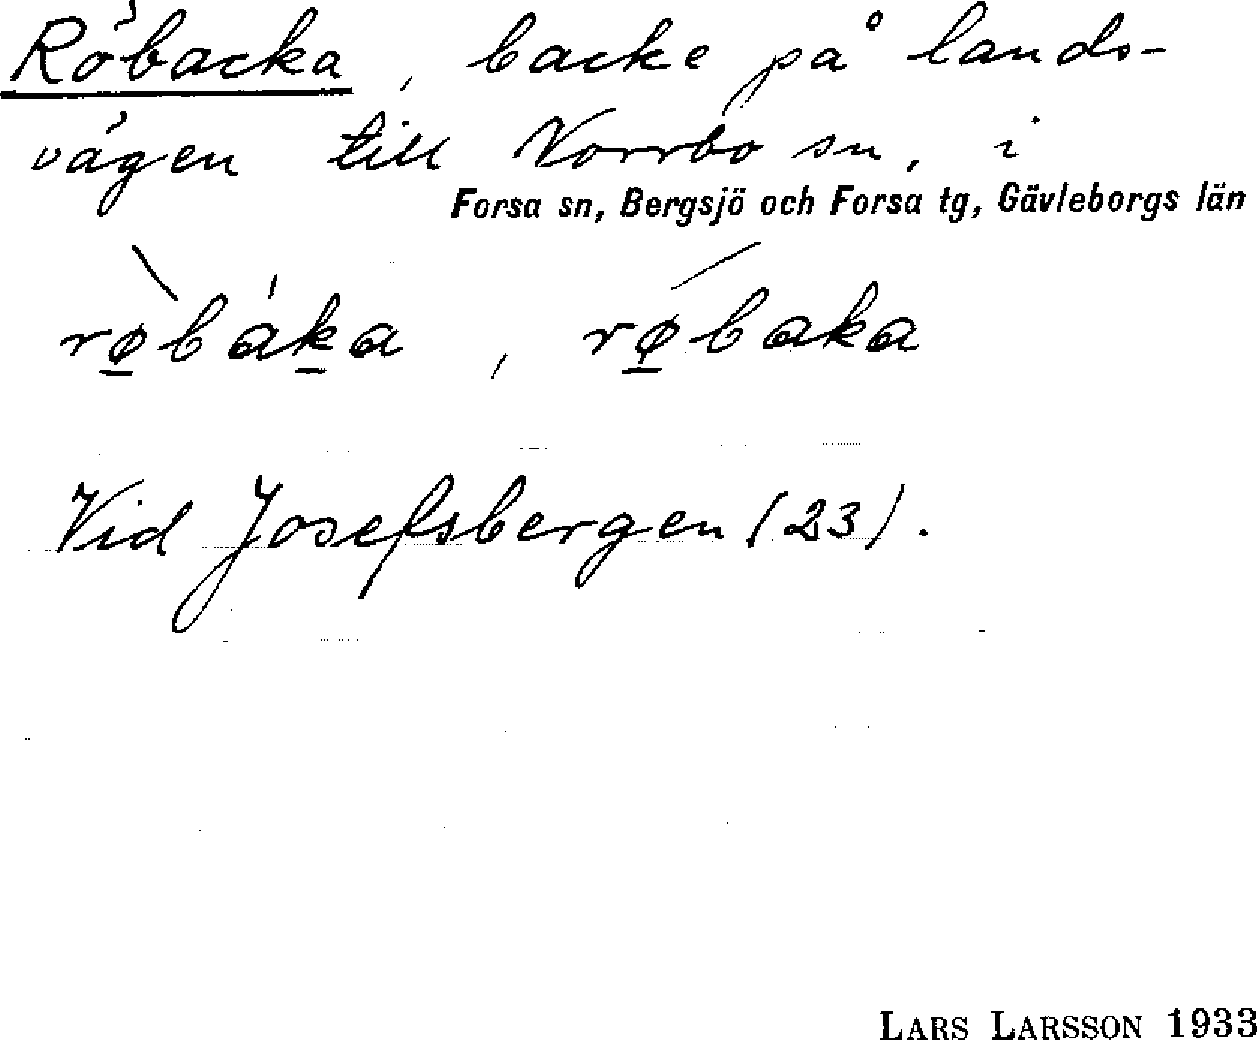 Röbacka, backe på lands-
vägen till Norrbo sn, i
Forsa sn, Bergsjö och Forsa tg, Gävleborgs län
rø̱̀báḵa, rǿ̱baka
Vid Josefsbergen (23).
LARS LARSSON 1933